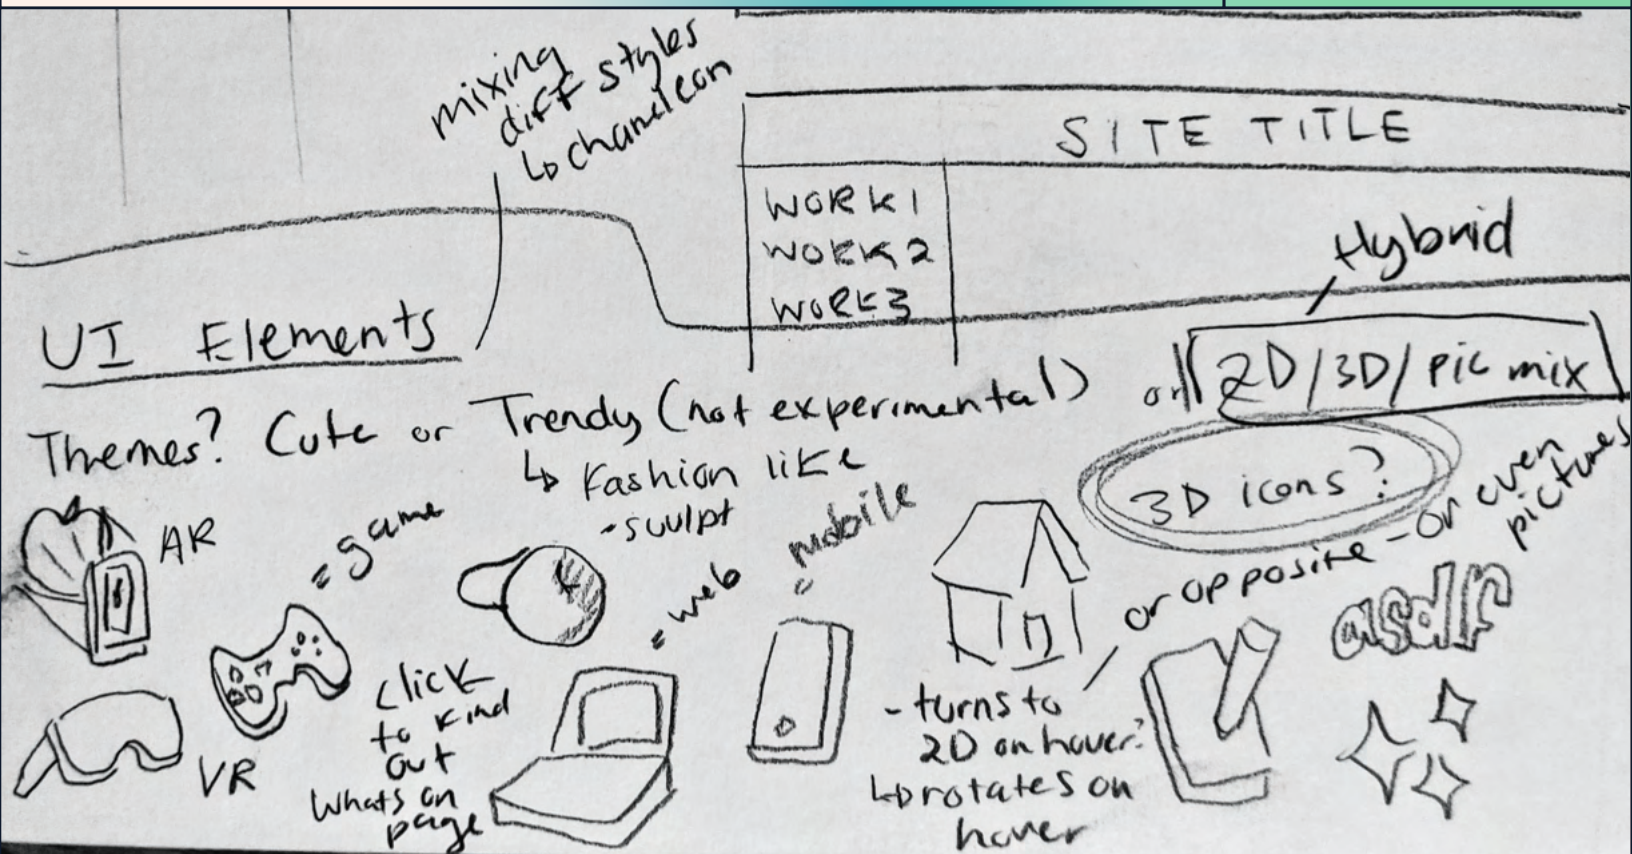 mixing
diff styles
↳ chameleon
SITE TITLE
WORK 1
WORK 2
WORK 3
Hybrid
UI Elements
Themes? Cute or Trendy (not experimental) or 2D/3D/pic mix
↳ Fashion like
- sculpt
3D icons?
or opposite - or even
pictures
AR
= game
= web
= mobile
VR
click
to kind
out
whats on
page
- turns to
2D on hover?
↳ rotates on
hover
asdf